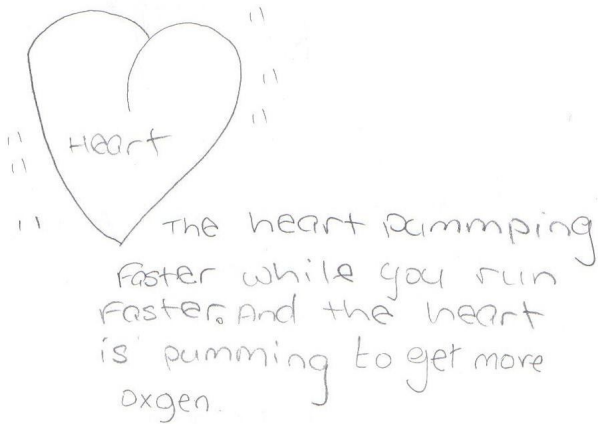 Heart
The heart pummping
Faster while you run
Faster. And the heart
is pumming to get more
oxgen.